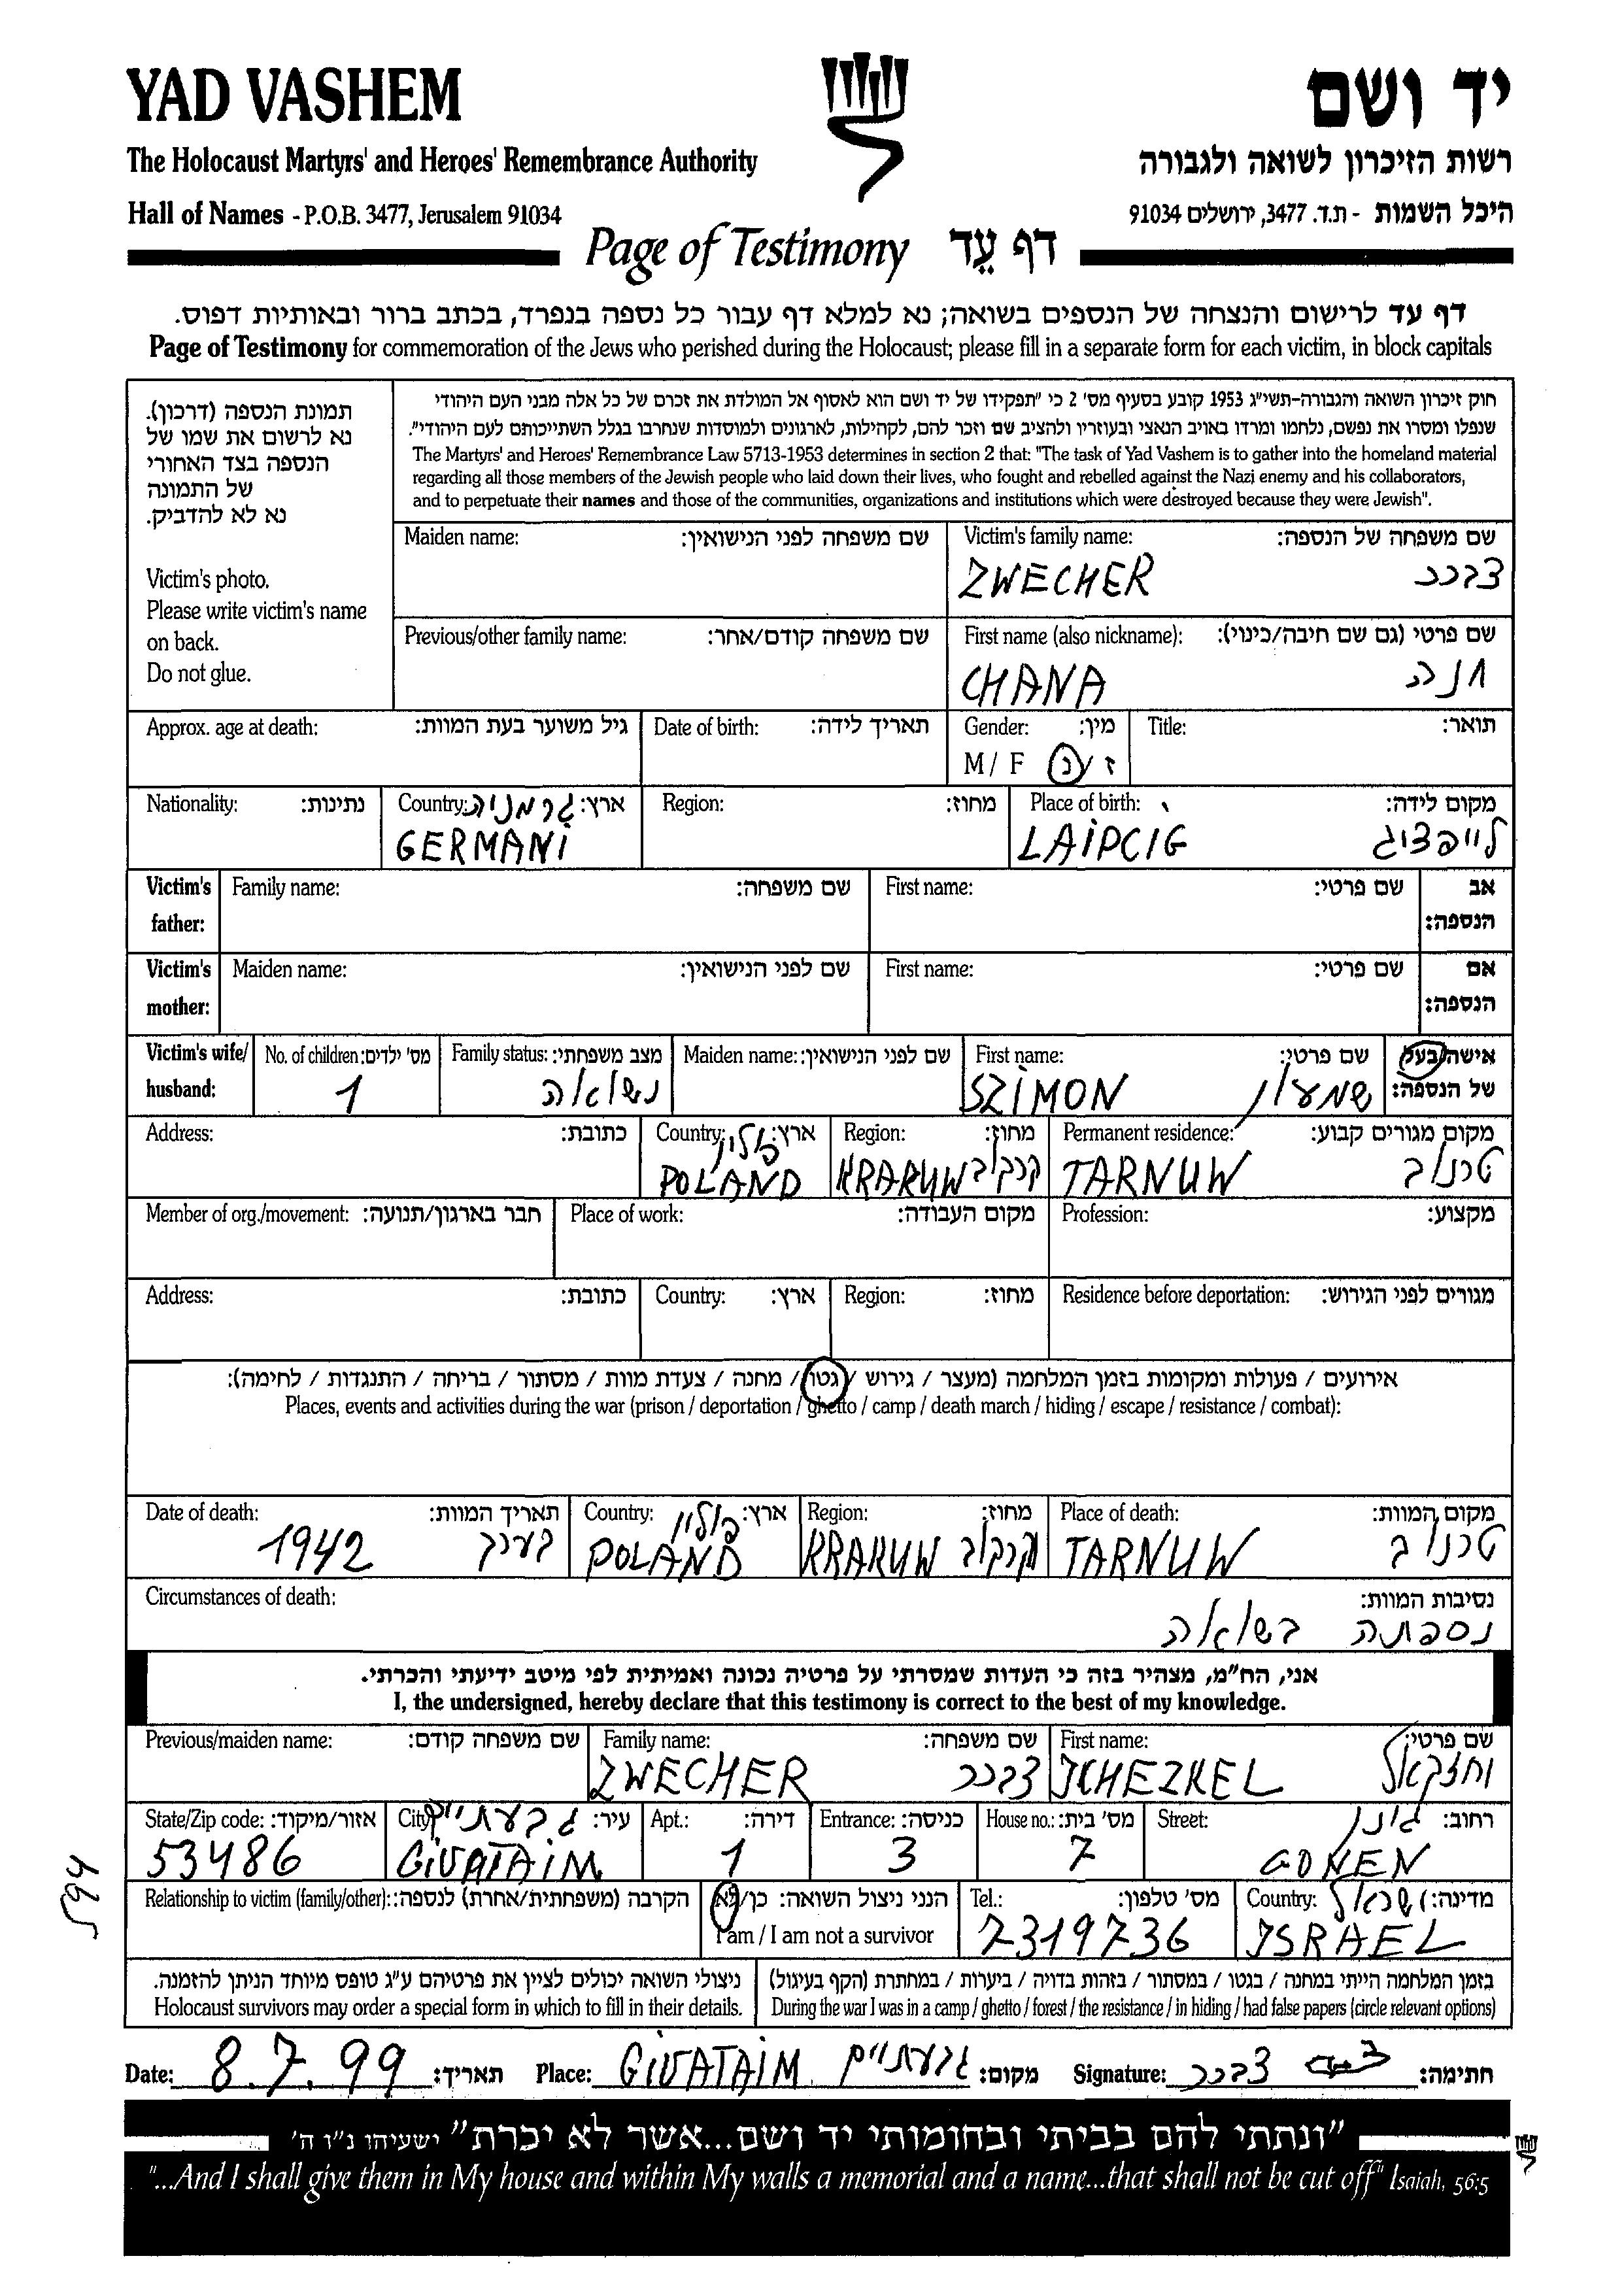 YAD VASHEM
יד ושם
The Holocaust Martyrs' and Heroes' Remembrance Authority
רשות הזיכרון לשואה ולגבורה
Hall of Names - P.O.B. 3477, Jerusalem 91034
היכל השמות - ת.ד. 3477, ירושלים 91034
Page of Testimony דף עֵד
דף עד לרישום והנצחה של הנספים בשואה; נא למלא דף עבור כל נספה בנפרד, בכתב ברור ובאותיות דפוס.
Page of Testimony for commemoration of the Jews who perished during the Holocaust; please fill in a separate form for each victim, in block capitals
תמונת הנספה (דרכון).
נא לרשום את שמו של
הנספה בצד האחורי
של התמונה
נא לא להדביק.
Victim's photo.
Please write victim's name
on back.
Do not glue.
חוק זיכרון השואה והגבורה-תשי"ג 1953 קובע בסעיף מס' 2 כי "תפקידו של יד ושם הוא לאסוף אל המולדת את זכרם של כל אלה מבני העם היהודי
שנפלו ומסרו את נפשם, נלחמו ומרדו באויב הנאצי ובעוזריו ולהציב שם וזכר להם, לקהילות, לארגונים ולמוסדות שנחרבו בגלל השתייכותם לעם היהודי".
The Martyrs' and Heroes' Remembrance Law 5713-1953 determines in section 2 that: "The task of Yad Vashem is to gather into the homeland material
regarding all those members of the Jewish people who laid down their lives, who fought and rebelled against the Nazi enemy and his collaborators,
and to perpetuate their names and those of the communities, organizations and institutions which were destroyed because they were Jewish".
Maiden name: שם משפחה לפני הנישואין:
Victim's family name: שם משפחה של הנספה:
ZWECHER צבכר
Previous/other family name: שם משפחה קודם/אחר:
First name (also nickname): שם פרטי (גם שם חיבה/כינוי):
CHANA חנה
Approx. age at death: גיל משוער בעת המוות:
Date of birth: תאריך לידה:
Gender: מין:
M / F ז / נ
Title: תואר:
Nationality: נתינות:
Country: ארץ: גרמניה
GERMANI
Region: מחוז:
Place of birth: מקום לידה:
LAIPCIG לייפציג
Victim's father: Family name: שם משפחה: First name: שם פרטי: אב הנספה:
Victim's mother: Maiden name: שם לפני הנישואין: First name: שם פרטי: אם הנספה:
Victim's wife/ husband:
No. of children: מס' ילדים:
1
Family status: מצב משפחתי:
נשואה
Maiden name: שם לפני הנישואין:
First name: שם פרטי:
SZIMON שמעון
אישה/בעל של הנספה:
Address: כתובת:
Country: ארץ: פולין
POLAND
Region: מחוז:
KRAKUW קרקוב
Permanent residence: מקום מגורים קבוע:
TARNUW טרנוב
Member of org./movement: חבר בארגון/תנועה:
Place of work: מקום העבודה:
Profession: מקצוע:
Address: כתובת:
Country: ארץ:
Region: מחוז:
Residence before deportation: מגורים לפני הגירוש:
אירועים / פעולות ומקומות בזמן המלחמה (מעצר / גירוש / גטו / מחנה / צעדת מוות / מסתור / בריחה / התנגדות / לחימה):
Places, events and activities during the war (prison / deportation / ghetto / camp / death march / hiding / escape / resistance / combat):
Date of death: תאריך המוות:
1942 בערך
Country: ארץ: פולין
POLAND
Region: מחוז:
KRAKUW קרקוב
Place of death: מקום המוות:
TARNUW טרנוב
Circumstances of death: נסיבות המוות:
נספתה בשואה
אני, הח"מ, מצהיר בזה כי העדות שמסרתי על פרטיה נכונה ואמיתית לפי מיטב ידיעתי והכרתי.
I, the undersigned, hereby declare that this testimony is correct to the best of my knowledge.
Previous/maiden name: שם משפחה קודם:
Family name: שם משפחה:
ZWECHER צבכר
First name: שם פרטי:
JCHEZKEL יחזקאל
State/Zip code: אזור/מיקוד:
53486
City: עיר: גבעתיים
GIVATAIM
Apt.: דירה:
1
Entrance: כניסה:
3
House no.: מס' בית:
7
Street: רחוב: גונן
GONEN
594
Relationship to victim (family/other): הקרבה (משפחתית/אחרת) לנספה:
הנני ניצול השואה: כן/לא
I am / I am not a survivor
Tel.: מס' טלפון:
7319736
Country: מדינה: ישראל
ISRAEL
ניצולי השואה יכולים לציין את פרטיהם ע"ג טופס מיוחד הניתן להזמנה.
Holocaust survivors may order a special form in which to fill in their details.
בזמן המלחמה הייתי במחנה / בגטו / במסתור / בזהות בדויה / ביערות / במחתרת (הקף בעיגול)
During the war I was in a camp / ghetto / forest / the resistance / in hiding / had false papers (circle relevant options)
Date: 8.7.99 תאריך: Place: GIVATAIM גבעתיים מקום: Signature: צבכר חתימה:
"ונתתי להם בביתי ובחומותי יד ושם...אשר לא יכרת" ישעיהו נ"ו ה'
"...And I shall give them in My house and within My walls a memorial and a name...that shall not be cut off" Isaiah, 56:5